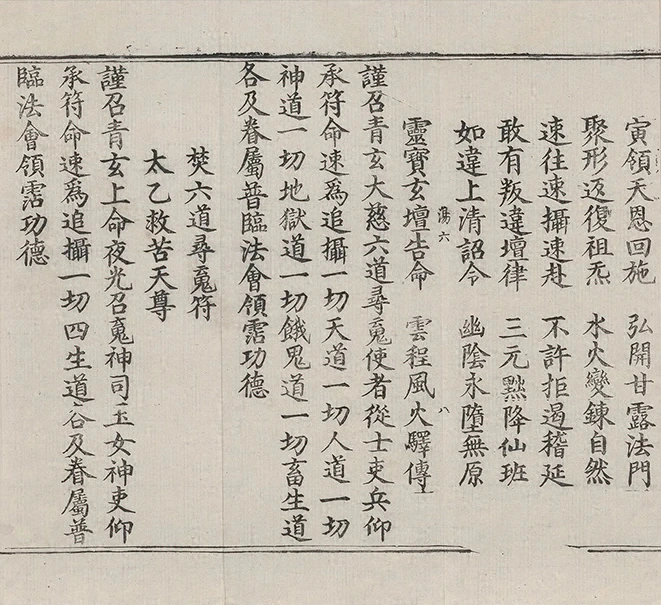 寅領天恩回施 弘開甘露法門
聚形返復祖炁 水火變鍊自然
速往速攝速赴 不許拒遏稽延
敢有叛違壇律 三元黜降仙班
如違上清詔令 幽陰永墮無原
靈寶玄壇告命 雲程風火驛傳
蕩六 八
謹召青玄大慈六道尋魂使者從士吏兵仰
承符命速爲追攝一切天道一切人道一切
神道一切地獄道一切餓鬼道一切畜生道
各及眷屬普臨法會領霑功德
焚六道尋魂符
太乙救苦天尊
謹召青玄上命夜光召魂神司玉女神吏仰
承符命速爲追攝一切四生道各及眷屬普
臨法會領霑功德